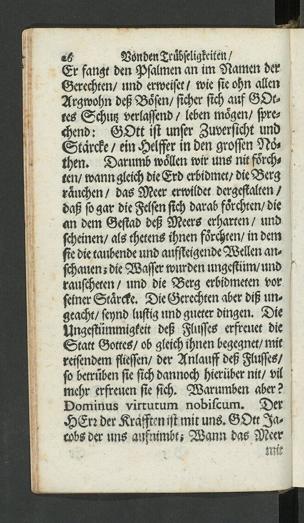 26 Von den Trübseligkeiten/
Er fangt den Psalmen an im Namen der
Gerechten/ und erweiset/ wie sie ohn allen
Argwohn deß Bösen/ sicher sich auf GOt-
tes Schutz verlassend/ leben mögen/ spre-
chend: GOtt ist unser Zuversicht und
Stärcke/ ein Helffer in den grossen Nö-
then. Darumb wöllen wir uns nit förch-
ten/ wann gleich die Erd erbidmet/ die Berg
räuchen/ das Meer erwildet dergestalten/
daß so gar die Felsen sich darab förchten/ die
an dem Gestad deß Meers erharten/ und
scheinen/ als thetens ihnen förchten/ in dem
sie die taubende und aufsteigende Wellen an-
schauen; die Wasser wurden ungestüm/ und
rauscheten/ und die Berg erbidmeten vor
seiner Stärcke. Die Gerechten aber diß un-
geacht/ seynd lustig und gueter dingen. Die
Ungestümmigkeit deß Flusses erfreuet die
Statt Gottes/ ob gleich ihnen begegnet/ mit
reisendem fliessen/ der Anlauff deß Flusses/
so betrüben sie sich dannoch hierüber nit/ vil
mehr erfreuen sie sich. Warumben aber?
Dominus virtutum nobiscum. Der
HErr der Kräfften ist mit uns. GOtt Ja-
cobs der uns aufnimbt; Wann das Meer
mit